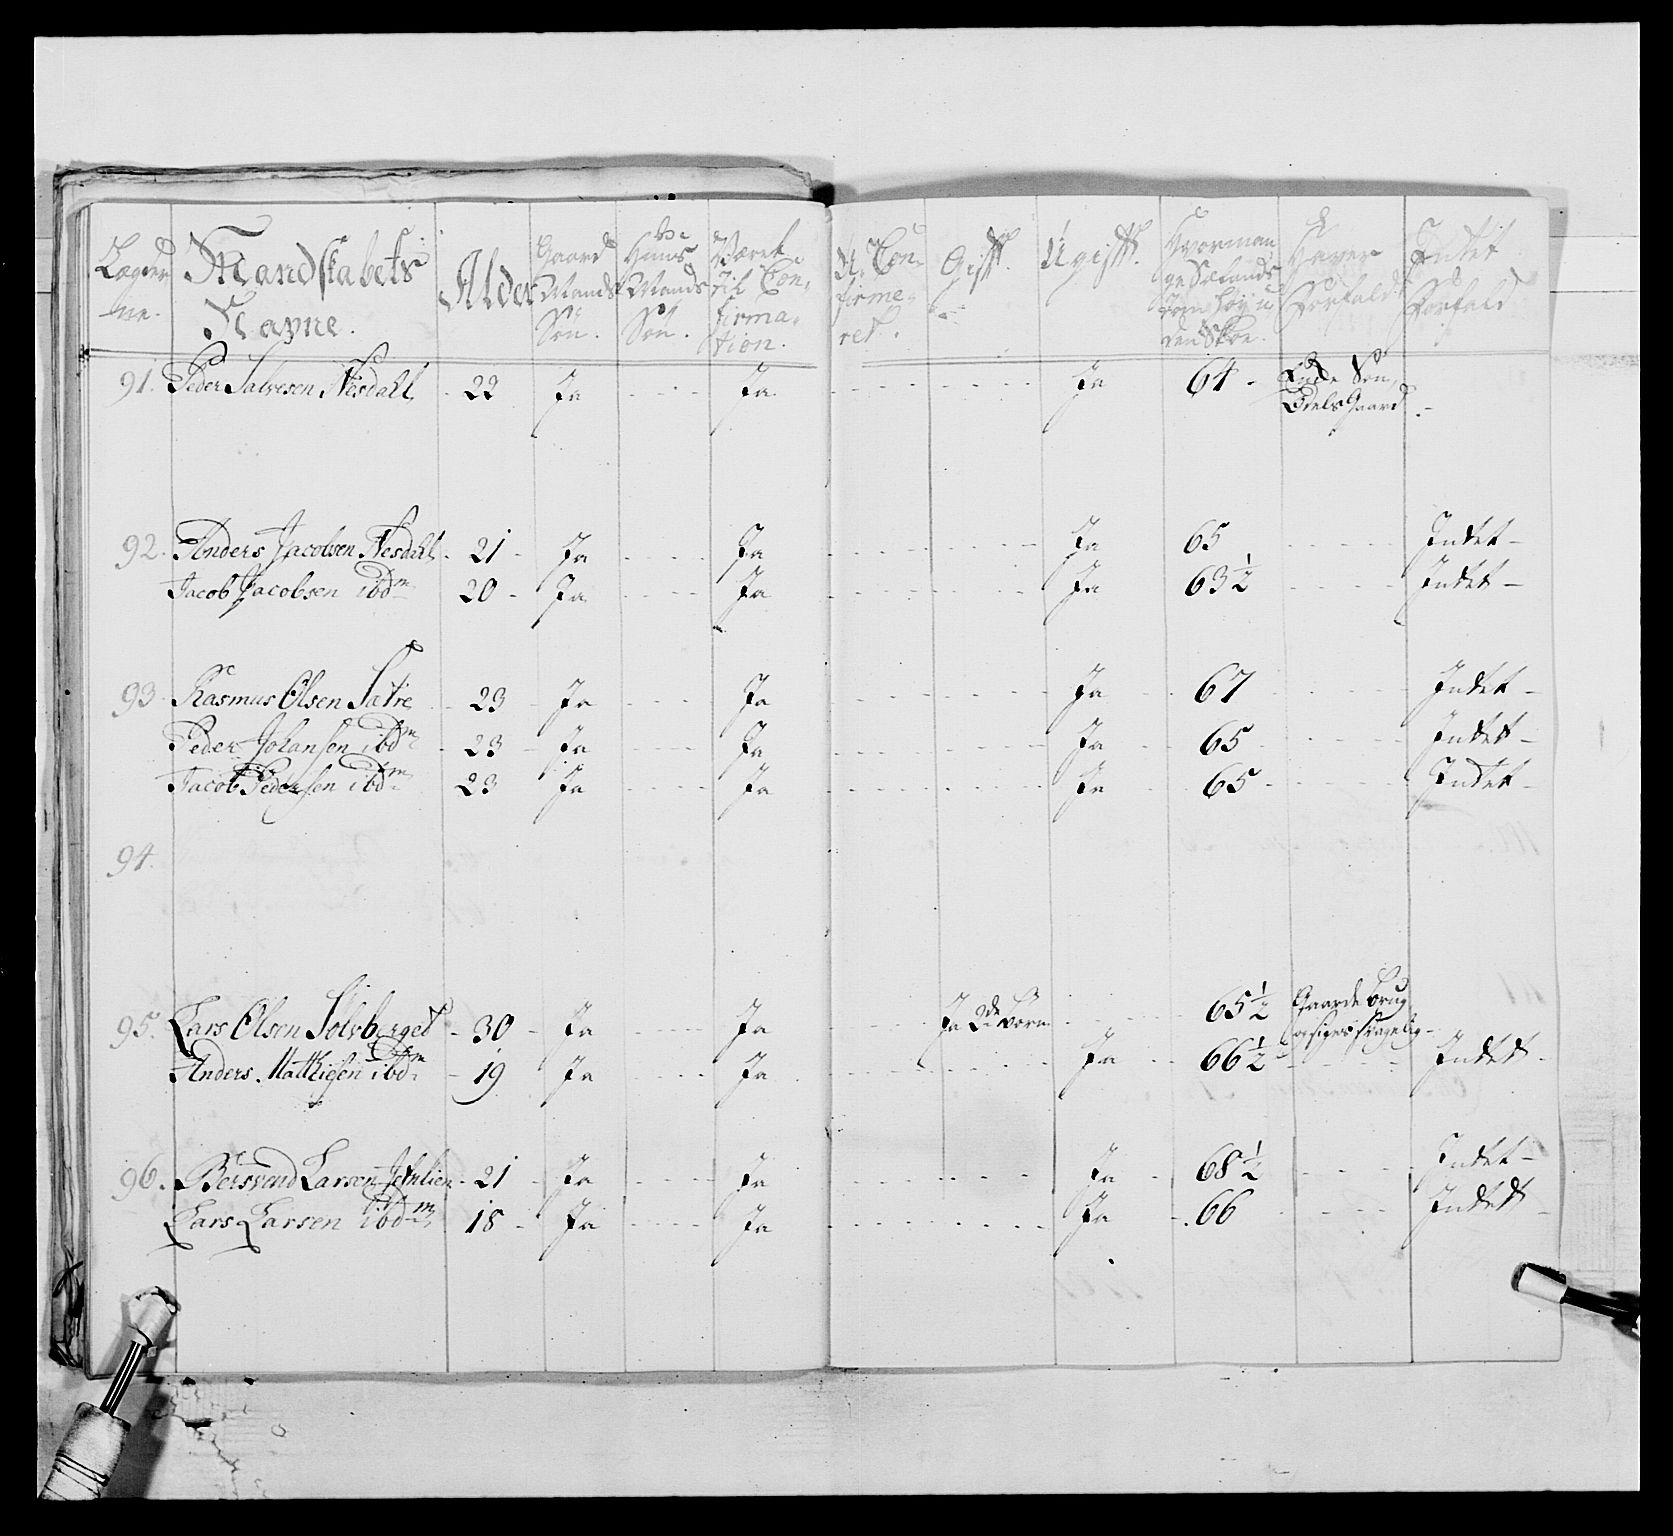 Lægder ne. Mandskabets Navne. Alder Gaard Mands Søn. Huus Mands Søn. Været til Confirmation. U-Confirmeret. Gift. Ugift. Hvormange Sælands Tom. høy uden Skoe. Haver Forfald. Intet Forfald
91. Peder Salvesen Nesdahl - 22 Ja - - - Ja - - - - - - Ja 64 - Eneste Søn, Odels Gaard -
92. Anders Jacobsen Nesdahl - 21 - Ja - - - Ja - - - - - - Ja 65 - - - - Intet -
Jacob Jacobsen ibdm 20 - Ja - - - Ja - - - - - - Ja 63 1/2 - - - - Intet -
93 Rasmus Olsen Sætre - 23 - Ja - - - Ja - - - - - - Ja - 67 - - - - Intet -
Peder Johansen ibdm - 23 - Ja - - - Ja - - - - - - Ja - 65 - - - - Intet -
Jacob Pedersen ibdm 23 Ja - - - Ja - - - - - - Ja - 65 - - - - Intet -
94.
95. Lars Olsen Solvberget - 30 - Ja - - - Ja - - - Ja 2de Børn - - - 65 1/2 Gaarde Brug
Anders Matthisen ibdm - 19 Ja - - - Ja - - - - - - Ja - - 66 1/2 - - - - Intet -
96. Bersvend Larsen - 21 - Ja - - - Ja - - - - - - Ja - 68 1/2 - - - Intet -
Lars Larsen ibdm 18 - Ja - - - Ja - - - - - - Ja - 66 - - - - Intet -